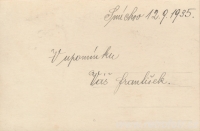 Smíchov 12 9 1935.
V upomínku
Váš František.